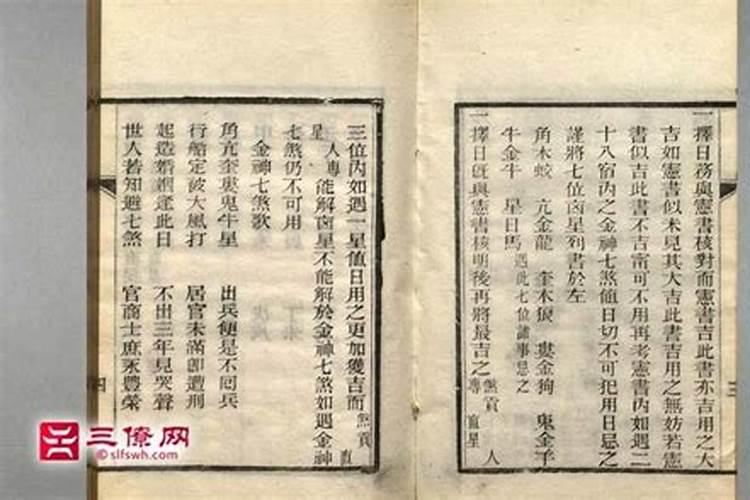 一擇日務與憲書核對而憲書吉此書亦吉用之大
吉如憲書似未見其大吉此書吉用之無妨若憲
書似吉此書不吉甯可不用再考憲書內如遇二
十八宿內之金神七煞值日切不可犯用日忌之
謹將七位凶星列書於左
角木蛟 亢金龍 奎木狼 婁金狗 鬼金羊
牛金牛 星日馬 遇此七位諸事忌之
一擇日既與憲書核明後再將最吉之煞貢 直星 人專
三
三位內如遇一星值日用之更加獲吉而煞貢 直
星 人專 能解凶星不能解於金神七煞如遇金神
七煞仍不可用
金神七煞歌
角亢奎婁鬼牛星 出兵便是不回兵
行船定被大風打 居官未滿卽遭刑
起造婚姻逢此日 不出三年見哭聲
世人若知避七煞 官商士庶永豐榮
四
三僚网
©slfswh.com